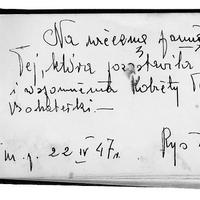 Na wieczną pamią
Tej, która pozostawiła
i wspomnienia Kobiety
Bohaterki. —
m. p. 22 IV 47 r. Ryś